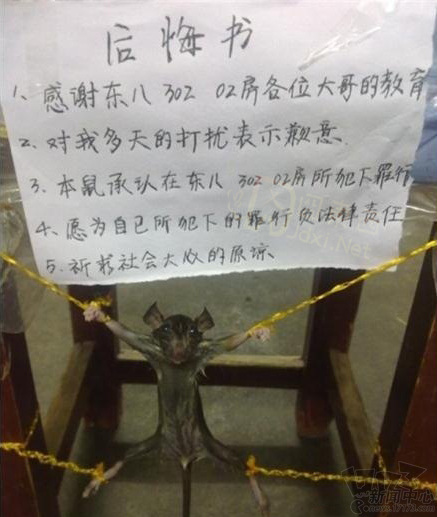 后悔书
1、感谢东八 302 02房各位大哥的教育
2、对我多天的打扰表示歉意.
3、本鼠承认在东八 302 02房所犯下罪行
4、愿为自己所犯下的罪行负法律责任
5、祈求社会大众的原谅.
新闻中心